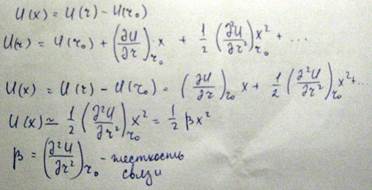 U(x) = U(r) - U(r₀)
U(r) = U(r₀) + (∂U/∂r)_r₀ x + 1/2 (∂²U/∂r²)_r₀ x² + ...
U(x) = U(r) - U(r₀) = (∂U/∂r)_r₀ x + 1/2 (∂²U/∂r²)_r₀ x² + ...
U(x) ≃ 1/2 (∂²U/∂r²)_r₀ x² = 1/2 βx²
β = (∂²U/∂r²)_r₀ - жесткость
связи